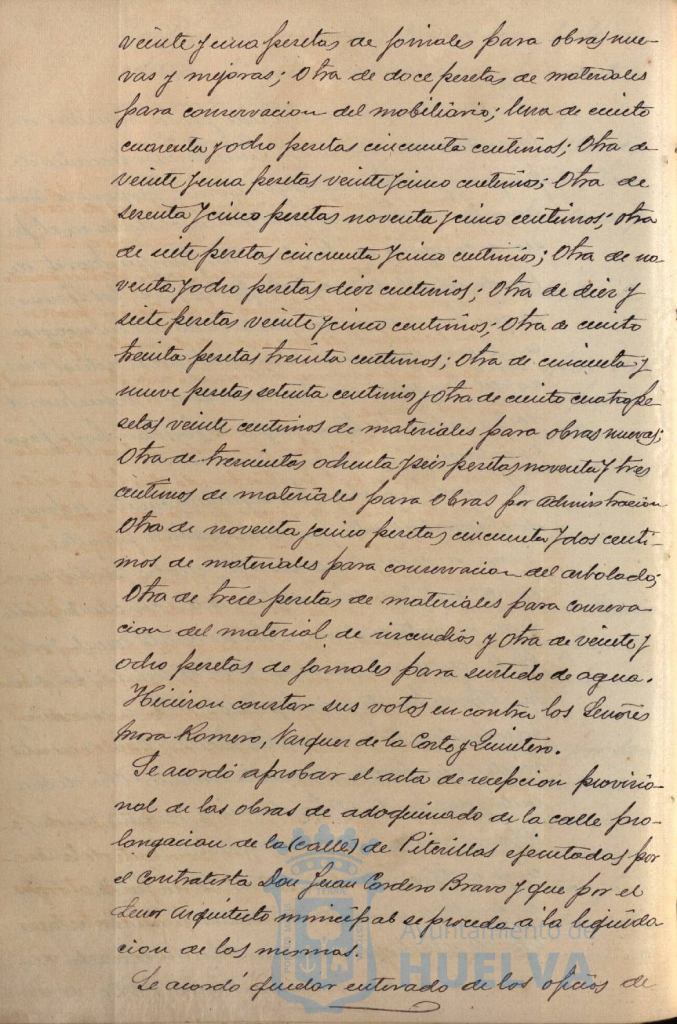 veinte y una pesetas de jornales para obras nue-
vas y mejoras; Otra de doce pesetas de materiales
para conservacion del mobiliario; Una de ciento
cuarenta y ocho pesetas cincuenta centimos; Otra de
veinte y una pesetas veinte y cinco centimos; Otra de
sesenta y cinco pesetas noventa y cinco centimos; Otra
de siete pesetas cincuenta y cinco centimos; Otra de no
venta y ocho pesetas diez centimos; Otra de diez y
siete pesetas veinte y cinco centimos; Otra de ciento
treinta pesetas treinta centimos; Otra de cincuenta y
nueve pesetas setenta centimos y Otra de ciento cuatro pe
setas veinte centimos de materiales para obras nuevas;
Otra de trescientas ochenta y seis pesetas noventa y tres
centimos de materiales para obras por administracion
Otra de noventa y cinco pesetas cincuenta y dos centi-
mos de materiales para conservacion del arbolado;
Otra de trece pesetas de materiales para conserva
cion del material de incendios y Otra de veinte y
ocho pesetas de jornales para surtido de agua.
Hicieron constar sus votos en contra los Señores
Mora Romero, Vazquez de la Corte y Quintero.
Se acordó aprobar el acta de recepcion provisio-
nal de las obras de adoquinado de la calle pro-
longacion de la (calle) de Piterillas ejecutadas por
el Contratista Don Juan Cordero Bravo y que por el
Señor Arquitecto municipal se proceda á la liquida
cion de las mismas.
Se acordó quedar enterado de los oficios de
Ayuntamiento de
HUELVA